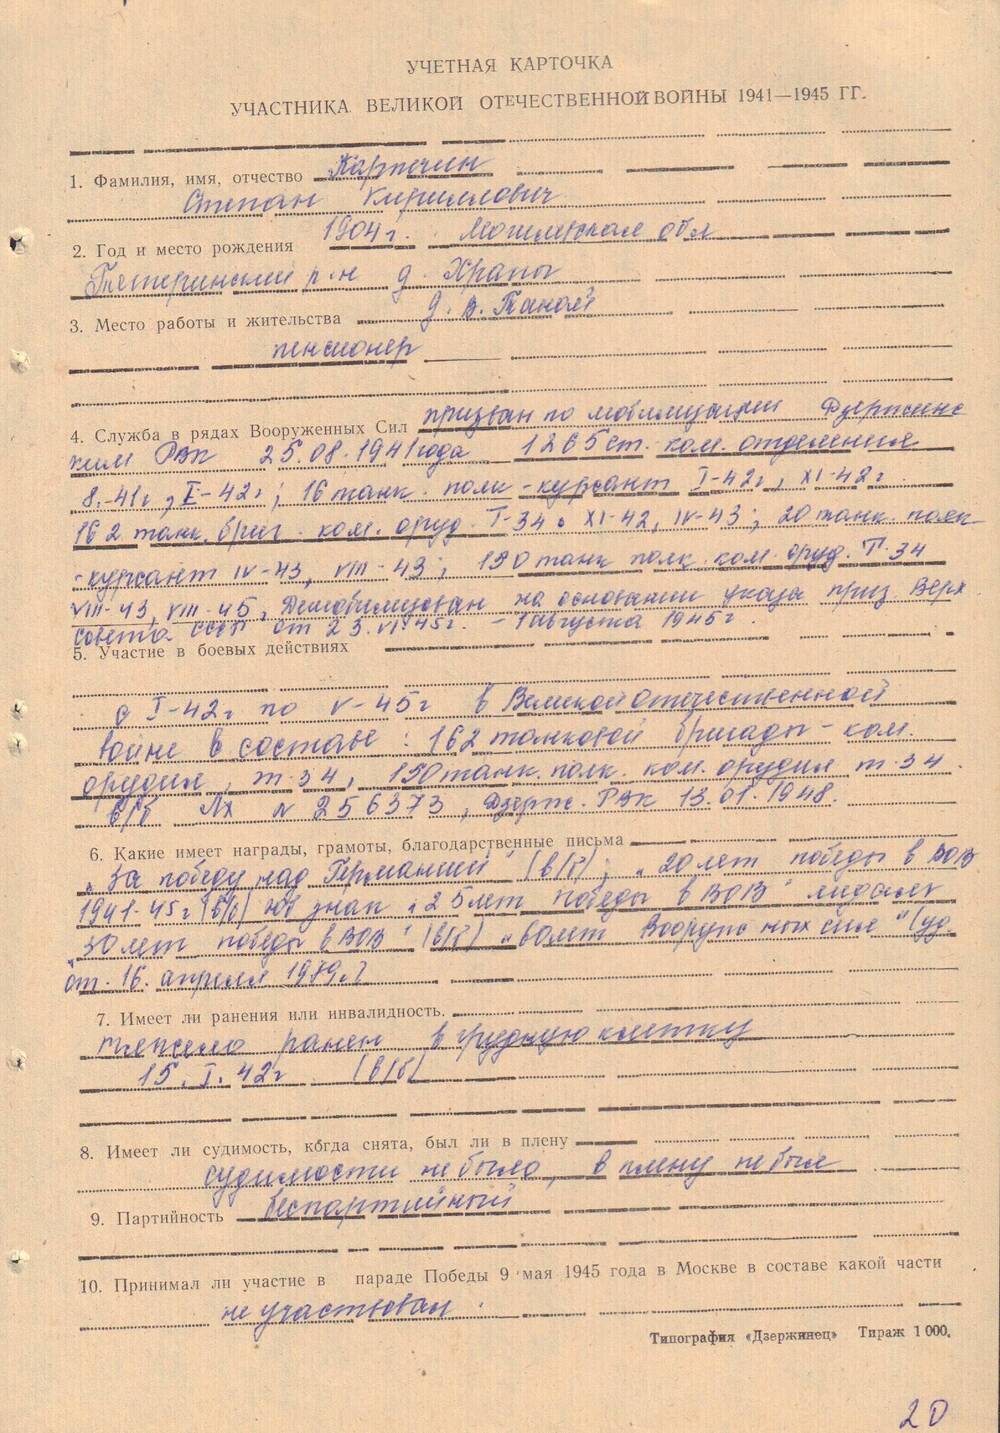 УЧЕТНАЯ КАРТОЧКА
УЧАСТНИКА ВЕЛИКОЙ ОТЕЧЕСТВЕННОЙ ВОЙНЫ 1941—1945 ГГ.
1. Фамилия, имя, отчество Карпечин
Степан Кириллович
2. Год и место рождения 1904г. Могилевская обл
р-н д. Храпы
3. Место работы и жительства д. В.
пенсионер
4. Служба в рядах Вооруженных Сил призван по мобилизации Дзержинс
ким РВК 25.08.1941 года 1265 ст. ком. отделения
8.-41г, I-42г; 16 танк. полк - курсант I-42г, XI-42г
162 танк. бриг. ком. оруд. Т-34. XI-42, IV-43; 20 танк. полк
- курсант IV-43, VIII-43; 190 танк полк. ком. оруд. Т-34
VIII-43, VIII-45, Демобилизован на основании указа през. Верх
Совета СССР от 23.VI.45г. - 1 августа 1945г.
5. Участие в боевых действиях
с I-42г по V-45г в Великой отечественной
войне в составе: 162 танковой бригады - ком.
орудия, т-34, 190 танк. полк. ком. орудия т-34.
в/б ЛХ N 256373, Дзерж. РВК 13.01.1948.
6. Какие имеет награды, грамоты, благодарственные письма
„За победу над Германией" (в/б); „20 лет победы в ВОВ
1941-45г (в/б) юб знак „25 лет победы в ВОВ" медаль
„30 лет победы в ВОВ" (в/б) „60 лет Вооруженных сил" (уд.
от. 16. апреля 1979г.)
7. Имеет ли ранения или инвалидность.
тяжело ранен в грудную клетку
15. I. 42г (в/б)
8. Имеет ли судимость, когда снята, был ли в плену
судимости не было, в плену не был
9. Партийность беспартийный
10. Принимал ли участие в параде Победы 9 мая 1945 года в Москве в составе какой части
не участвовал.
Типография «Дзержинец» Тираж 1 000.
20